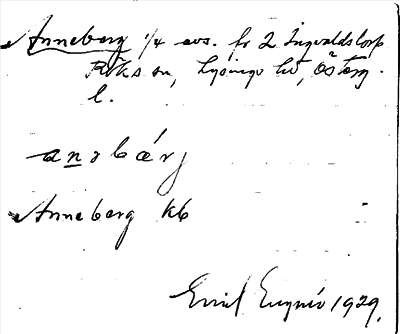 Anneberg 1/4 avs. fr 2 Ingvaldstorp
Röks sn, Lysings hd, Östergl.
anəbærj
Anneberg kb
Emil 1929.